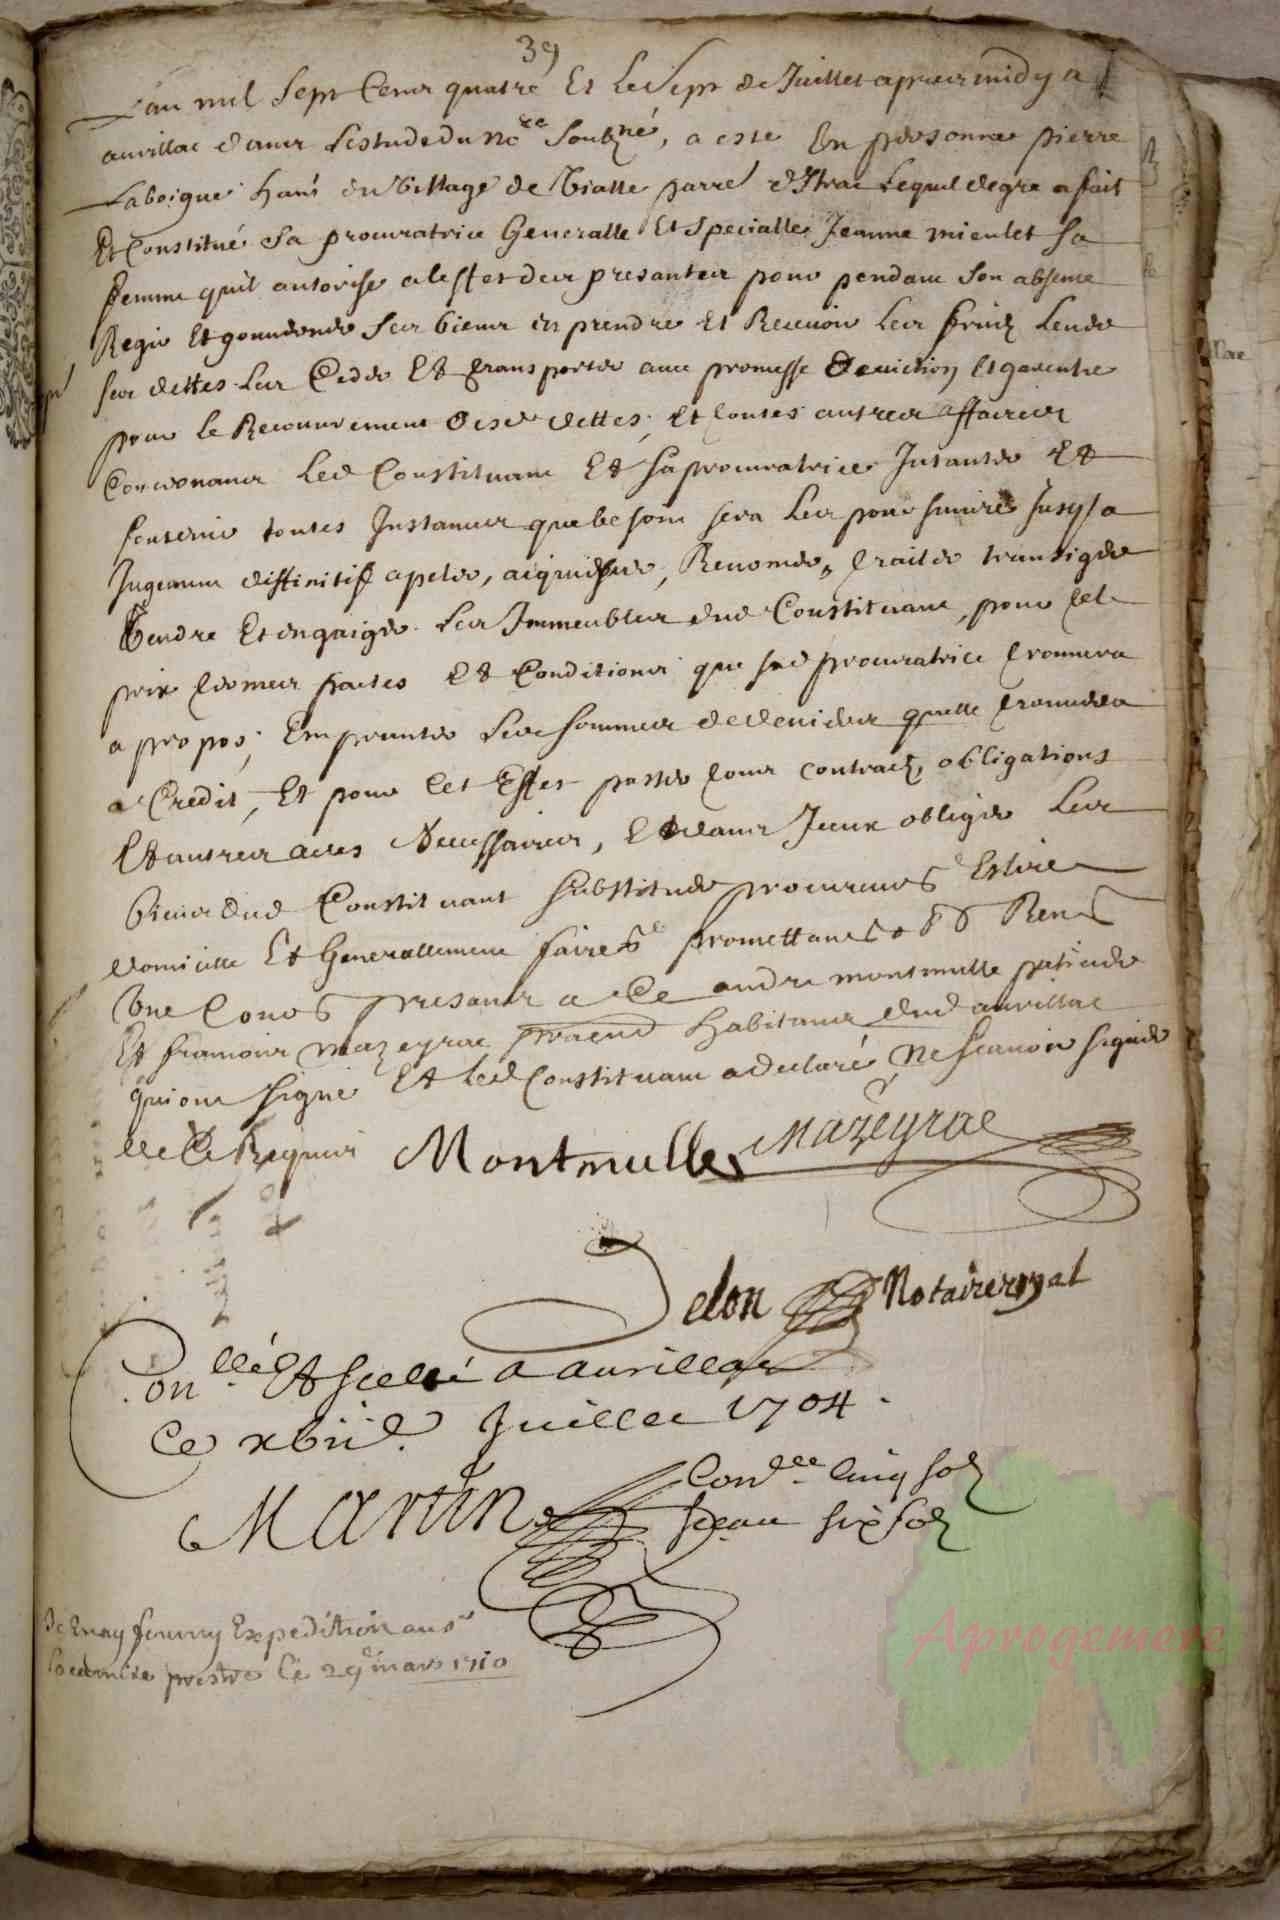 39
L'an mil sept cens quatre et le sept de Juillet apres midy a
aurillac dans l'estude du nore soubzné, a este en personne pierre
Laboigue habt du village de Vialle parre d'Itrac lequel de gre a fait
et constitué sa procuratrice Generalle et specialle Jeanne mieulet sa
femme quil autorise a l'effet des presantes pour pendant son absence
Regir et gouverner ses biens en prendre et Recevoir les fruidz
ses dettes les Ceder et transporter avec promesse d'eviction et garentie
pour le Recouvrement desd dettes, et toutes autres affaires
Concernans led Constituant et sa procuratrice Intanter et
soutenir toutes Instances que besoin sera les poursuivre jusq'a
Jugement diffinitif apeler, Renoncer, traiter transiger
Vendre et engaiger les Immeubles dud Constituant, pour tel
prix termes pactes et Conditions que sad procuratrice trouvera
a propos, Emprunter les sommes de deniers quelle trouvera
a Credit, et pour cet Effet passer tous contractz, obligations
et autres actes Necessaires, et dans Iceux obliger les
biens dud Constituant substituer procureurs Eslire
domicille et Generallement faire promettant Ren
presans a Ce andre montmulle paticier
et francois mazeyrac habitans dud aurillac
qui ont signé et led Constituant a declaré ne scavoir signer
de Ce Requis Montmulle Mazeyrac
Delon Notaire royal
Conllé et scellé a aurillac
Ce xviie Juillet 1704.
Martin Conlle cinq solz
sceau six solz
Expedition
prestre le 29e mars 1710
Aprogemere